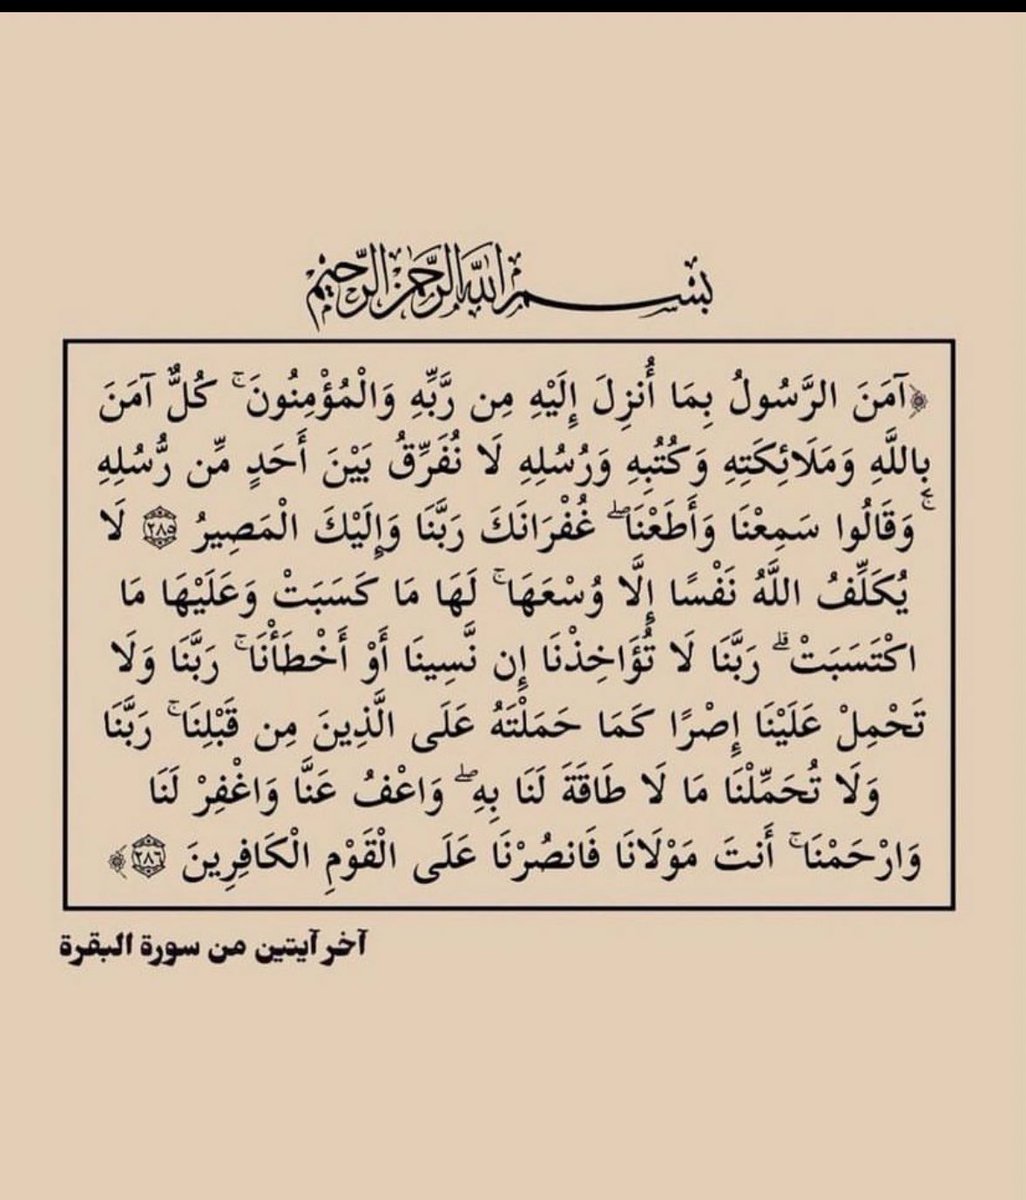 بسم الله الرحمن الرحيم
﴿آمَنَ الرَّسُولُ بِمَا أُنزِلَ إِلَيْهِ مِن رَّبِّهِ وَالْمُؤْمِنُونَ ۚ كُلٌّ آمَنَ
بِاللَّهِ وَمَلَائِكَتِهِ وَكُتُبِهِ وَرُسُلِهِ لَا نُفَرِّقُ بَيْنَ أَحَدٍ مِّن رُّسُلِهِ
ۚ وَقَالُوا سَمِعْنَا وَأَطَعْنَا ۖ غُفْرَانَكَ رَبَّنَا وَإِلَيْكَ الْمَصِيرُ ﴿٢٨٥﴾ لَا
يُكَلِّفُ اللَّهُ نَفْسًا إِلَّا وُسْعَهَا ۚ لَهَا مَا كَسَبَتْ وَعَلَيْهَا مَا
اكْتَسَبَتْ ۗ رَبَّنَا لَا تُؤَاخِذْنَا إِن نَّسِينَا أَوْ أَخْطَأْنَا ۚ رَبَّنَا وَلَا
تَحْمِلْ عَلَيْنَا إِصْرًا كَمَا حَمَلْتَهُ عَلَى الَّذِينَ مِن قَبْلِنَا ۚ رَبَّنَا
وَلَا تُحَمِّلْنَا مَا لَا طَاقَةَ لَنَا بِهِ ۖ وَاعْفُ عَنَّا وَاغْفِرْ لَنَا
وَارْحَمْنَا ۚ أَنتَ مَوْلَانَا فَانصُرْنَا عَلَى الْقَوْمِ الْكَافِرِينَ ﴿٢٨٦﴾﴾
آخر آيتين من سورة البقرة